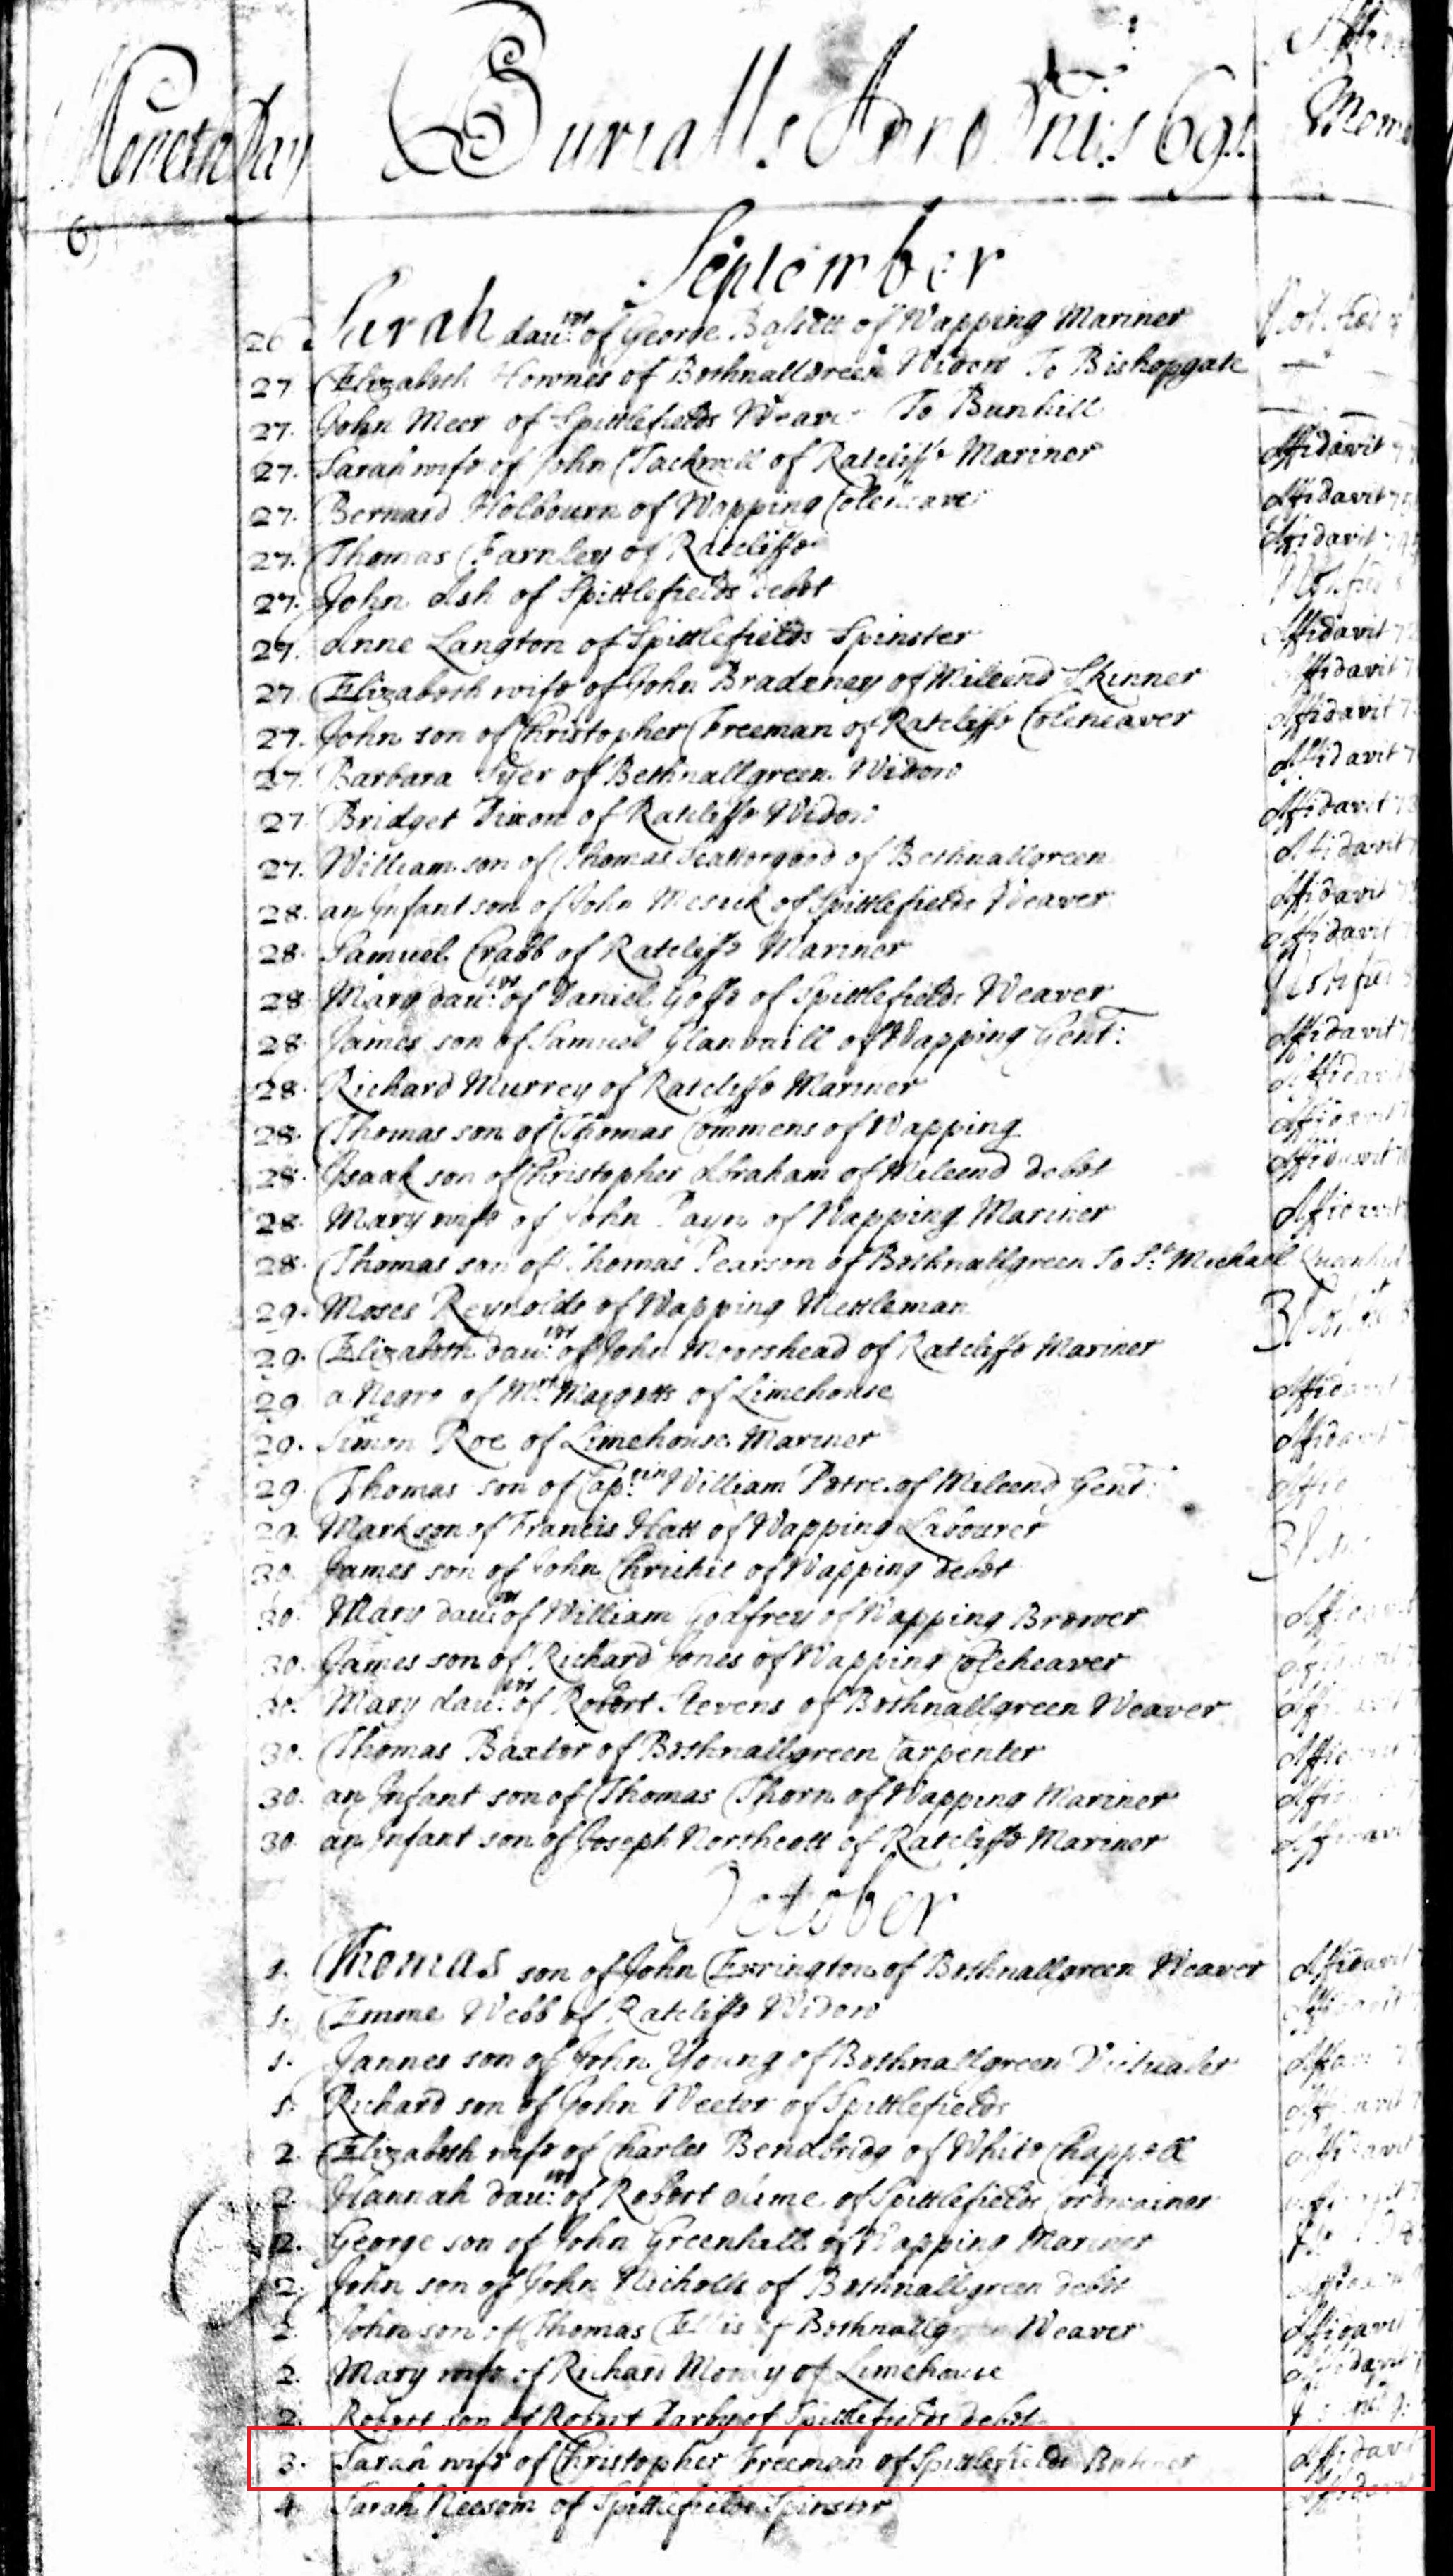 Moneth Day Burialls Anno Dni: 169
September
26 Sarah dau:ter of George of Wapping Mariner
27 Elizabeth of Bethnallgreen Widow To Bishopgate
27. John Meer of Spittlefields Weaver To Bunhill
27. Sarah wife of John Tackwell of Ratcliffe Mariner Affidavit
27. Bernard Holbourn of Wapping Coleheaver Affidavit
27. Thomas Farnley of Ratcliffe Affidavit
27. John Ash of Spittlefields debt
27. Anne Langton of Spittlefields Spinster Affidavit
27. Elizabeth wife of John Bradeney of Mileend Skinner Affidavit
27. John son of Christopher Freeman of Ratcliffe Coleheaver Affidavit
27. Barbara of Bethnallgreen Widow Affidavit
27 Bridget Dixon of Ratcliffe Widow Affidavit
27. William son of Thomas Scattergood of Bethnallgreen Affidavit
28. an Infant son of John Mesick of Spittlefields Weaver Affidavit
28. Samuel Crabb of Ratcliffe Mariner Affidavit
28 Mary dau:ter of Daniel Goffe of Spittlefields Weaver
28. James son of Samuel Glanvaill of Wapping Gent: Affidavit
28. Richard Murrey of Ratcliffe Mariner Affidavit
28. Thomas son of Thomas Commens of Wapping Affidavit
28. Isaak son of Christopher Abraham of Mileend debt Affidavit
28 Mary wife of John Payn of Wapping Mariner Affidavit
28. Thomas son of Thomas Pearson of Bethnallgreen To St Michael
29. Moses Reynolds of Wapping Mettleman
29. Elizabeth dau:ter of John Moorshead of Ratcliffe Mariner
29 a Negro of Mrs Margetts of Limehouse Affidavit
29. Simon Roe of Limehouse Mariner Affidavit
29 Thomas son of William Petre of Mileend Gent:
29. Mark son of Francis Hatt of Wapping Labourer
30. James son of John of Wapping debt
30 Mary dau:ter of William Godfrey of Wapping Brewer
30. James son of Richard Jones of Wapping Coleheaver
30. Mary dau:ter of Robert Stevens of Bethnallgreen Weaver
30. Thomas Baxter of Bethnallgreen Carpenter
30. an Infant son of Thomas Thorn of Wapping Mariner
30 an Infant son of Joseph Northcott of Ratcliffe Mariner
October
1. Thomas son of John Errington of Bethnallgreen Weaver Affidavit
1. Emme Webb of Ratcliffe Widow
1. Jannes son of John Young of Bethnallgreen Victualer
1. Richard son of John Weeter of Spittlefields
2 Elizabeth wife of Charles Bendbridg of White Chappell
2 Hannah dau:ter of Robert of Spittlefields Cordwainer
2. George son of John Greenhill of Wapping Mariner
2. John son of John Nicholls of Bethnallgreen debt
2. John son of Thomas Ellis of Weaver Affidavit
2. Mary wife of Richard of Limehouse
2. Robert son of Robert Darby of Spittlefields debt
3. Sarah wife of Christopher Freeman of Spittlefields Affidavit
4 Sarah Neesom of Spittlefields Spinster